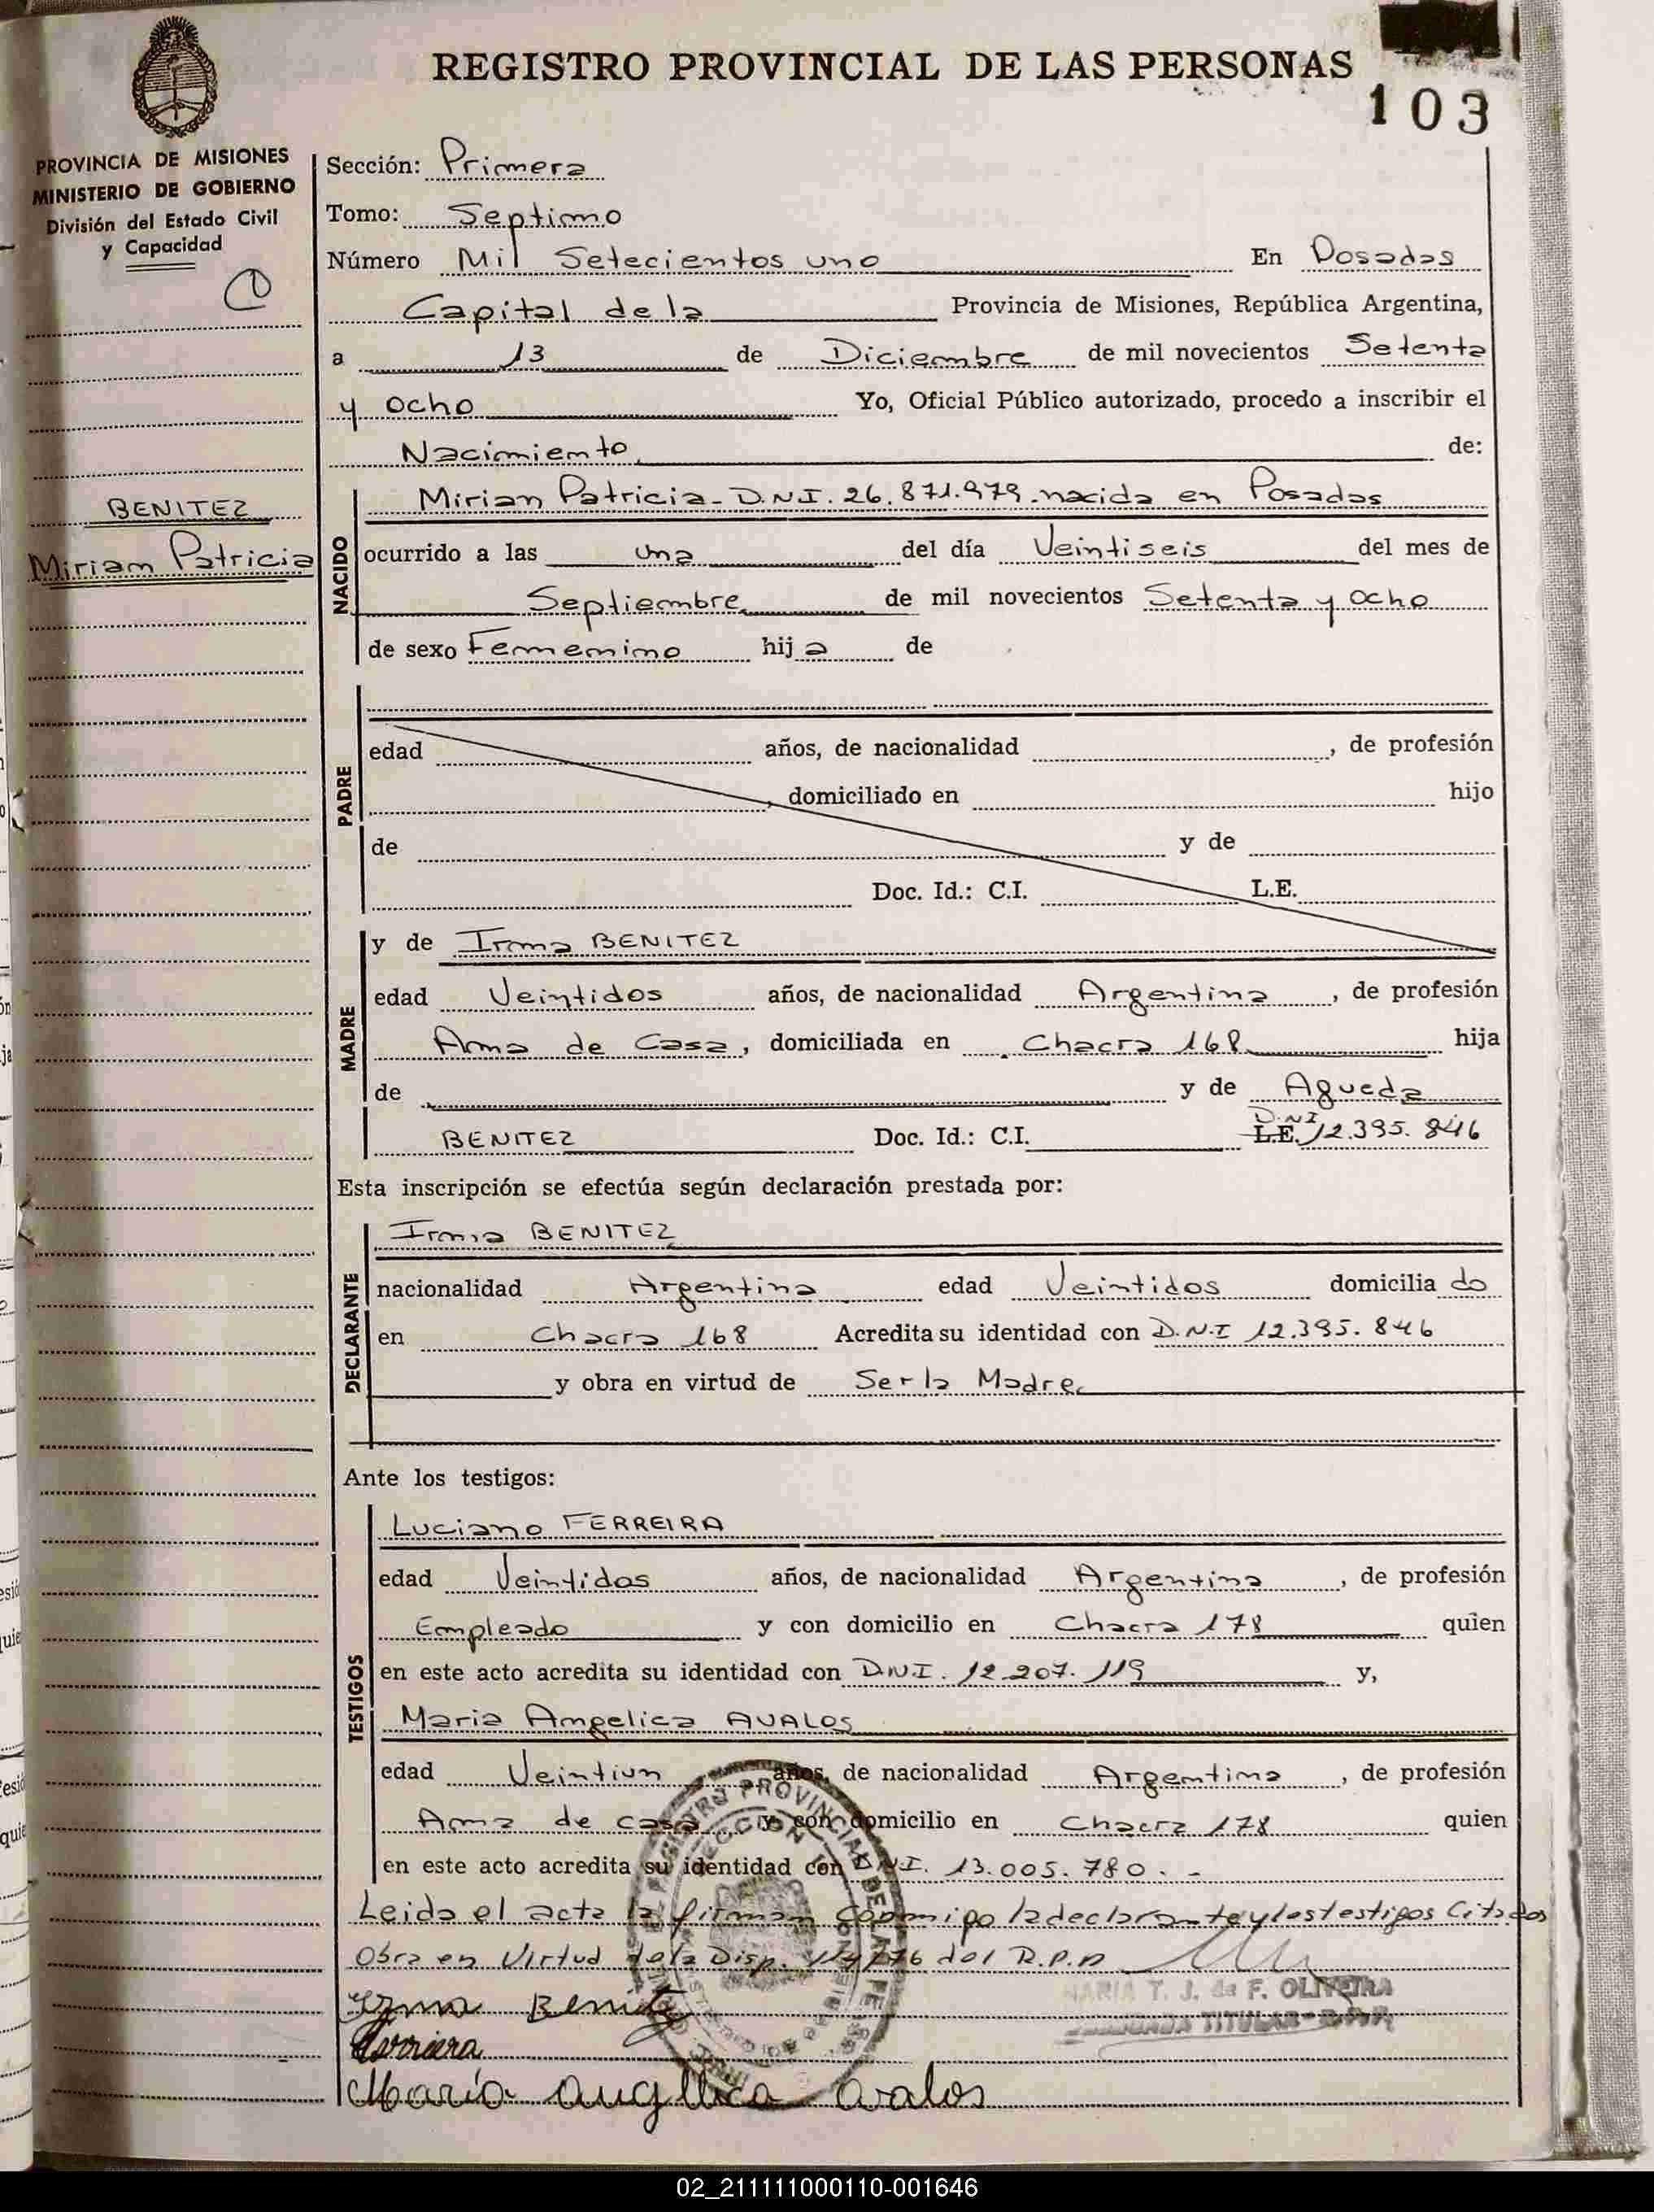 REGISTRO PROVINCIAL DE LAS PERSONAS
103
PROVINCIA DE MISIONES
MINISTERIO DE GOBIERNO
División del Estado Civil
y Capacidad
BENITEZ
Miriam Patricia
Sección: Primera
Tomo: Septimo
Número Mil Setecientos uno En Posadas
Capital de la Provincia de Misiones, República Argentina,
a 13 de Diciembre de mil novecientos Setenta
y ocho Yo, Oficial Público autorizado, procedo a inscribir el
Nacimiento de:
NACIDO
Mirian Patricia - D.N.I. 26.871.979 - nacida en Posadas
ocurrido a las una del día Veintiseis del mes de
Septiembre de mil novecientos Setenta y ocho
de sexo Femenino hija de
PADRE
edad años, de nacionalidad , de profesión
, domiciliado en hijo
de y de
Doc. Id.: C.I. L.E.
MADRE
y de Irma BENITEZ
edad Veintidos años, de nacionalidad Argentina, de profesión
Ama de Casa, domiciliada en Chacra 168 hija
de y de Agueda
BENITEZ Doc. Id.: C.I. L.E. D.N.I 12.395.846
Esta inscripción se efectúa según declaración prestada por:
DECLARANTE
Irma BENITEZ
nacionalidad Argentina edad Veintidos domicilia do
en Chacra 168 Acredita su identidad con D.N.I 12.395.846
y obra en virtud de Ser la Madre
Ante los testigos:
TESTIGOS
Luciano FERREIRA
edad Veintidos años, de nacionalidad Argentina, de profesión
Empleado y con domicilio en Chacra 178 quien
en este acto acredita su identidad con D.N.I. 12.207.119 y,
Maria Angelica AVALOS
edad Veintiun años, de nacionalidad Argentina, de profesión
Ama de casa y con domicilio en Chacra 178 quien
en este acto acredita su identidad con D.N.I. 13.005.780.-
Leida el acta la firman conmigo la declarante y los testigos Citados
Obra en Virtud de la Disp. /76 del R.P.P
MARIA T. J. de F. OLIVEIRA
TITULAR - R.P.P.
REGISTRO PROVINCIAL DE LAS PE
Irma Benitez
Ferreira
Maria Angelica Avalos
02_211111000110-001646